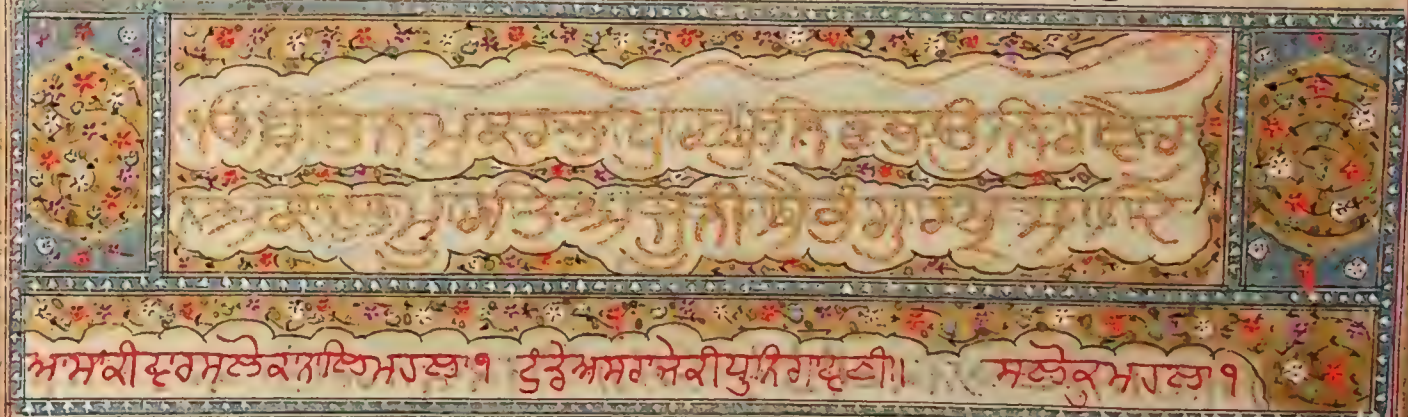 ੴਸਤਿਨਾਮੁਕਰਤਾਪੁਰਖੁਨਿਰਭਉਨਿਰਵੈਰੁ
ਅਕਾਲਮੂਰਤਿਅਜੂਨੀਸੈਭੰਗੁਰਪ੍ਰਸਾਦਿ
ਆਸਾਕੀਵਾਰਸਲੋਕਾਨਾਲਿਮਹਲਾ੧ ਟੁੰਡੇਅਸਰਾਜੇਕੀਧੁਨਿਗਾਵਣੀ॥ ਸਲੋਕੁਮਹਲਾ੧